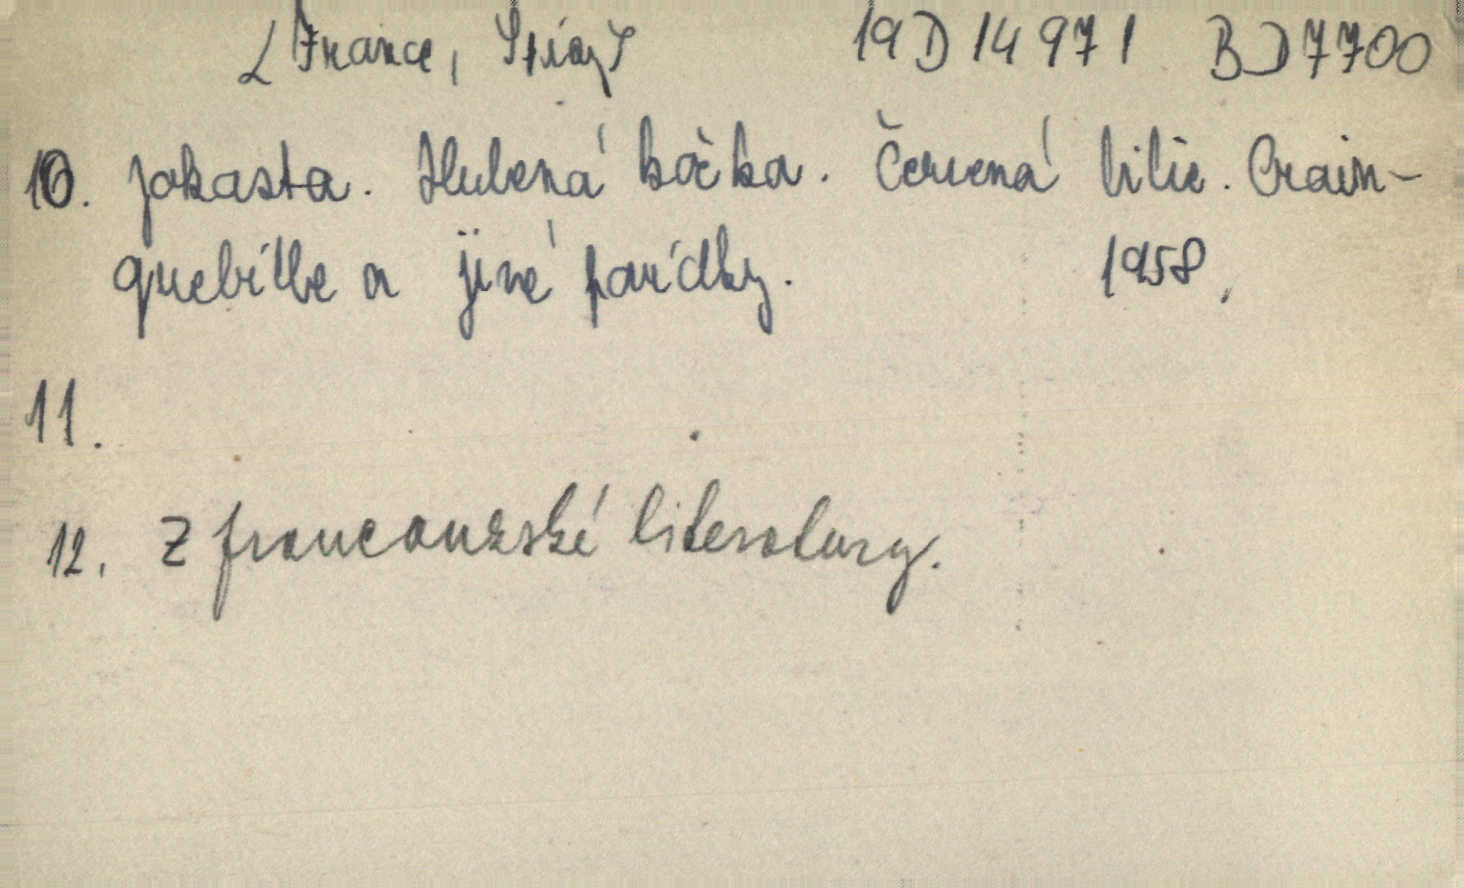 [France, Spisy] 19 D 14 971 BD 7700
10. Jokasta. Hubená kočka. Červená lilie. Crain-
quebille a jiné povídky. 1958,
11.
12. Z francouzské literatury.